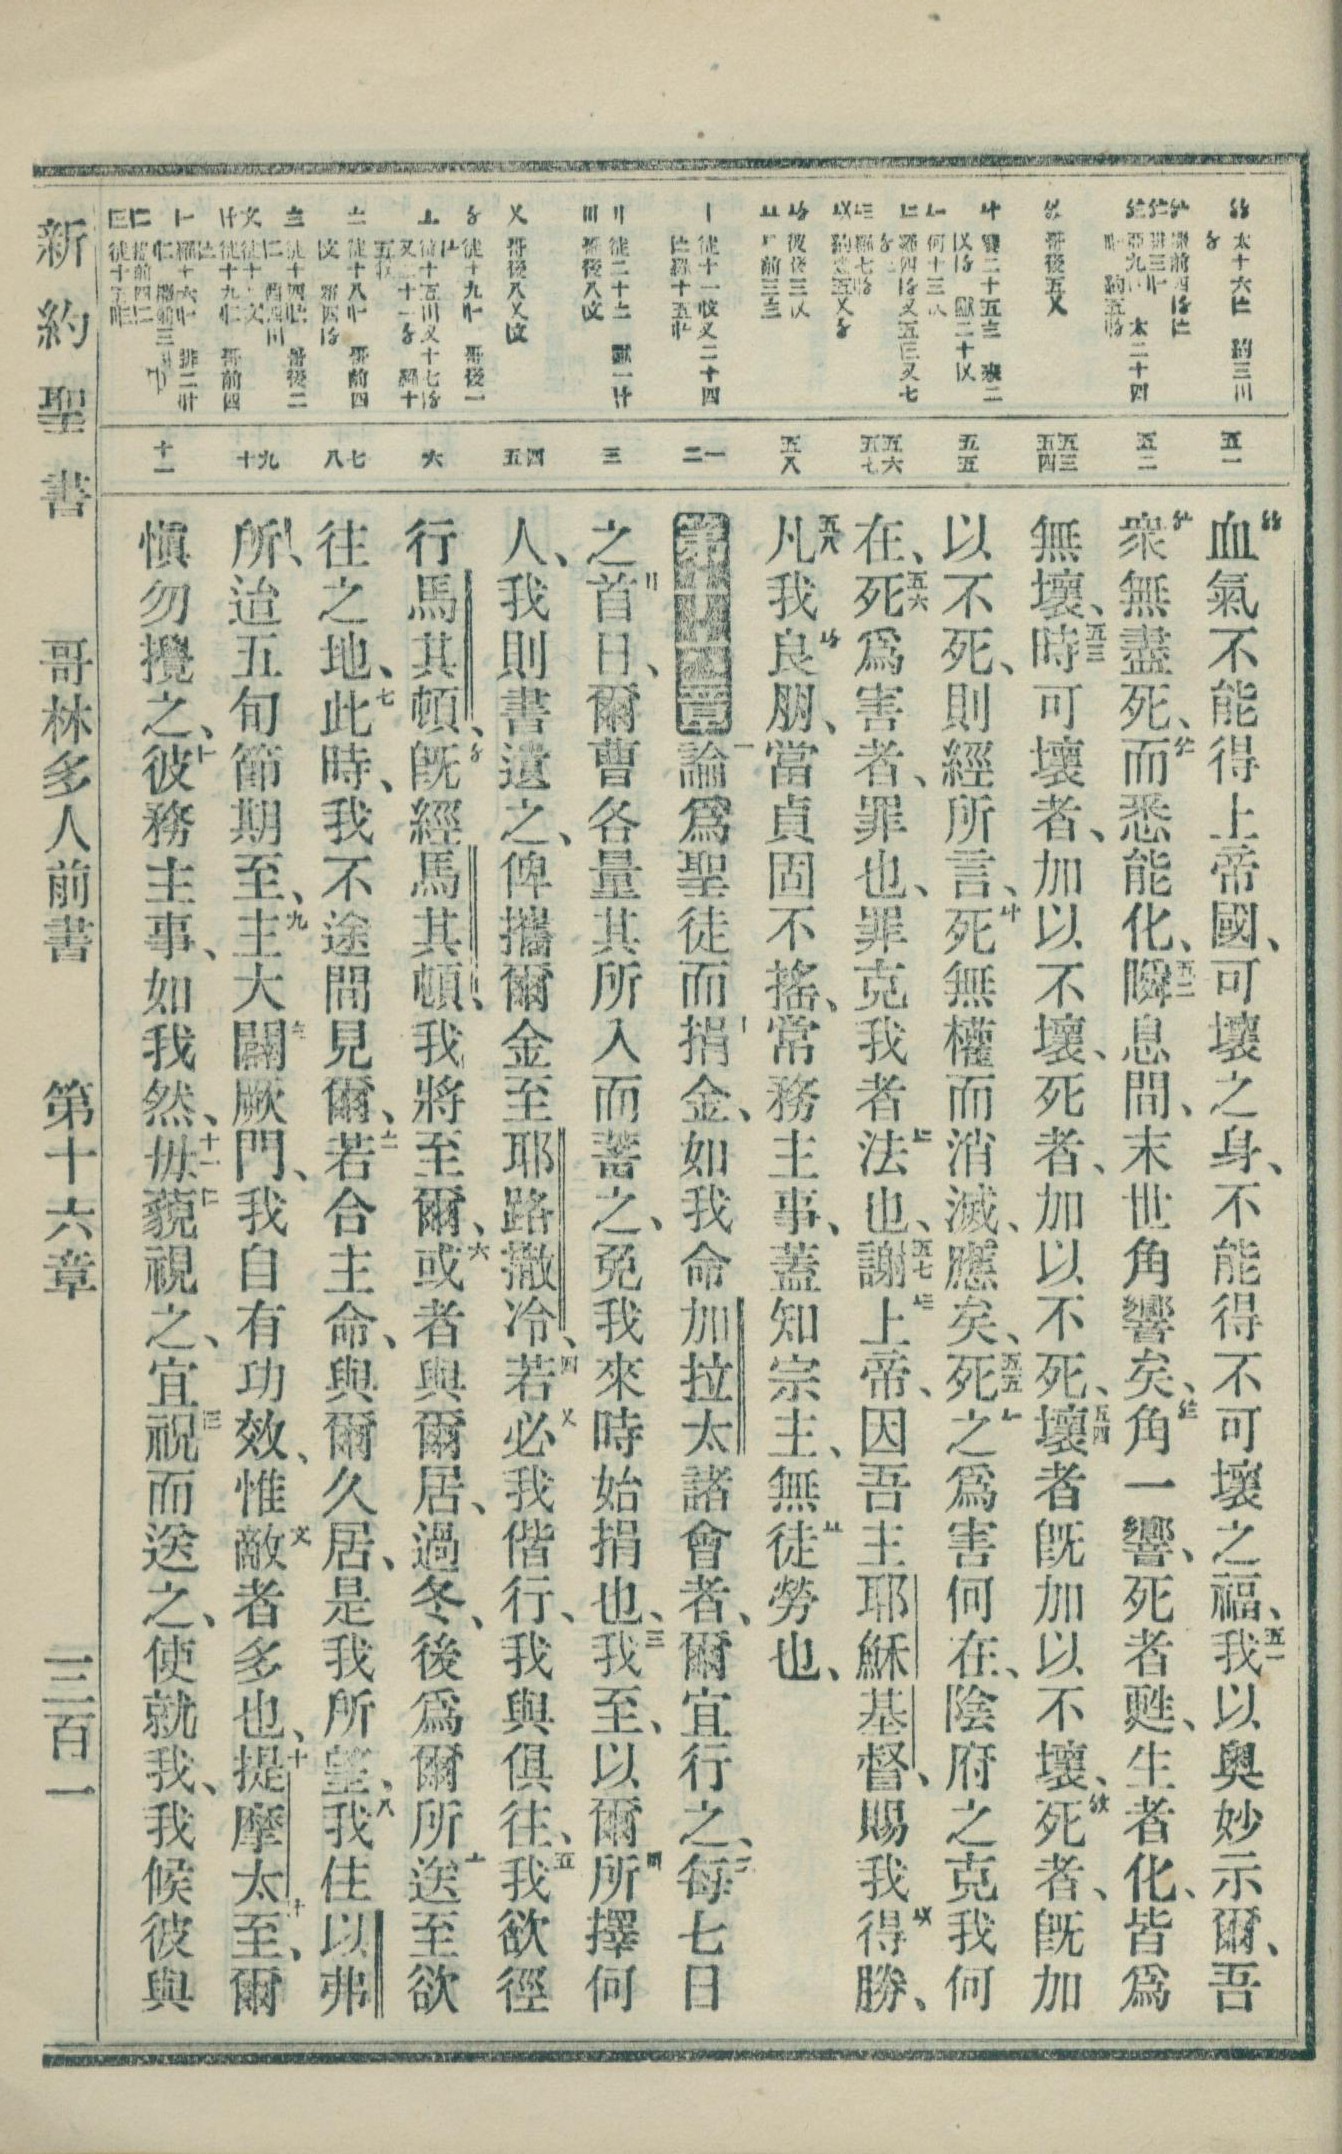 血氣不能得上帝國、可壞之身、不能得不可壞之福、五一我以奧妙示爾、吾
衆無盡死、而悉能化、五二瞬息間、末世角響矣、角一響、死者甦、生者化、皆爲
無壞、五三時可壞者、加以不壞、死者、加以不死、五四壞者旣加以不壞、死者、旣加
以不死、則經所言、死無權而消滅、應矣、五五死之爲害何在、陰府之克我何
在、五六死爲害者、罪也、罪克我者法也、五七謝上帝、因吾主耶穌基督、賜我得勝、
五八凡我良朋、當貞固不搖、常務主事、蓋知宗主、無徒勞也、
第十六章 一論爲聖徒而捐金、如我命加拉太諸會者、爾宜行之、二每七日
之首日、爾曹各量其所入而蓄之、免我來時始捐也、三我至、以爾所擇何
人、我則書遺之、俾攜爾金至耶路撒冷、四若必我偕行、我與俱往、五我欲徑
行馬其頓、旣經馬其頓、我將至爾、六或者與爾居、過冬、後爲爾所送至欲
往之地、七此時、我不途間見爾、若合主命、與爾久居、是我所望、八我住以弗
所、迨五旬節期至、九主大闢厥門、我自有功效、惟敵者多也、十提摩太至、爾
愼勿攪之、彼務主事、如我然、十一毋藐視之、宜祝而送之、使就我、我候彼與
五一
五二
五三 五四
五五
五六 五七
五八
一 二
三
四 五
六
七 八
九 十
十一
新約聖書 哥林多人前書 第十六章 三百一